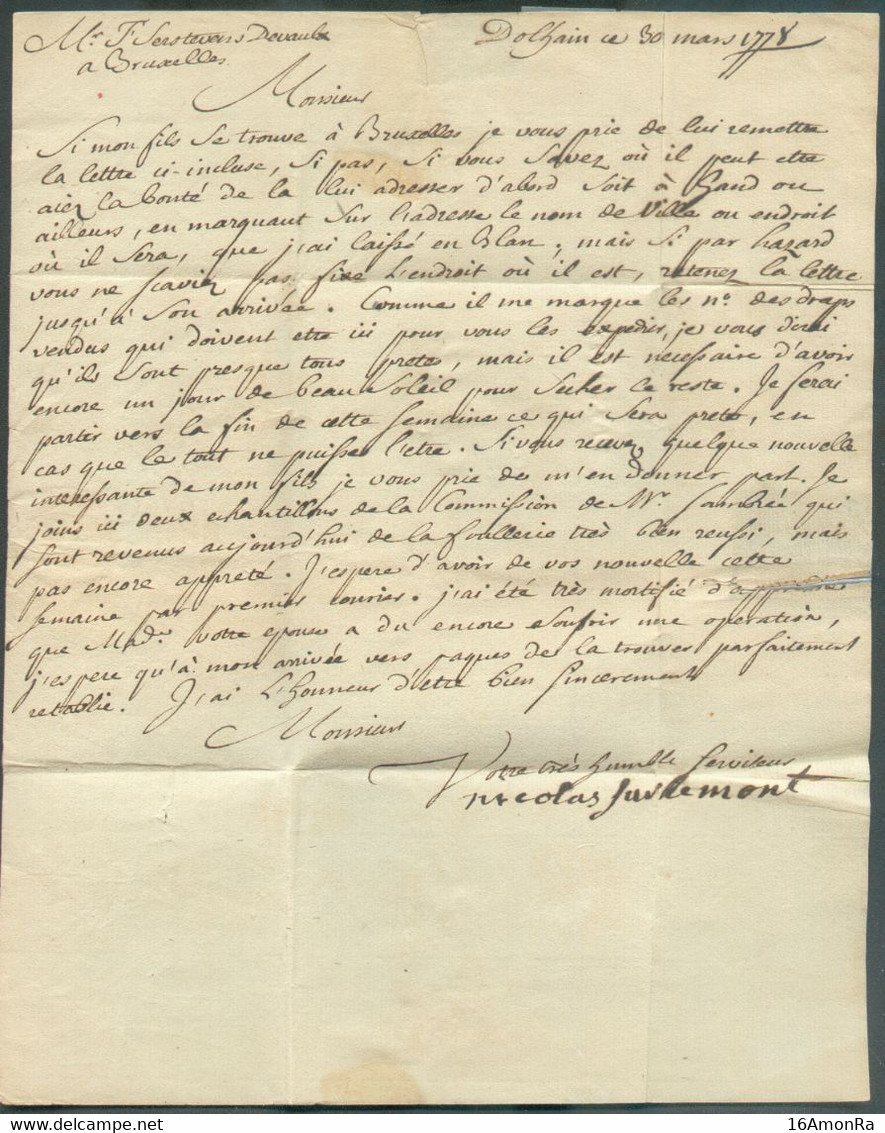 Mr. F. Serstevens Devaulx Dolhain ce 30 mars 1778
a Bruxelles.
Monsieur
Si mon fils se trouve à Bruxelles je vous prie de lui remettre
la lettre ci-incluse, Si pas, Si vous Savez où il peut etre
aiez la bonté de la lui adresser d'abord soit à Gand ou
ailleurs, en marquant sur l'adresse le nom de Ville ou endroit
où il sera, que j'ai laissé en Blan; mais Si par hazard
vous ne scaviez pas fixe l'endroit où il est, retenez la lettre
jusqu'à Son arrivée. Comme il me marque les no. des draps
vendus qui doivent etre ici pour vous les expedier, je vous dirai
qu'ils sont presque tous prets, mais il est necessaire d'avoir
encore un jour de beau Soleil pour Secher le reste. Je ferai
partir vers la fin de cette semaine ce qui sera prete, en
cas que le tout ne puisse l'etre. Si vous recevez quelque nouvelle
interessante de mon fils je vous prie de m'en donner part. Je
joins ici deux echantillons de la Commission de Mr. Sambrée qui
sont revenus aujourd'hui de la foullerie très bien reussi, mais
pas encore appreté. J'espere d'avoir de vos nouvelle cette
semaine par premier courier. j'ai été très mortifié d'apprendre
que Made. votre epouse a du encore soufrir une operation,
j'espere qu'à mon arrivée vers paques de la trouver parfaitement
retablie. J'ai l'honneur d'etre bien sincerement
Monsieur
Votre très humble serviteur
nicolas
16AmonRa